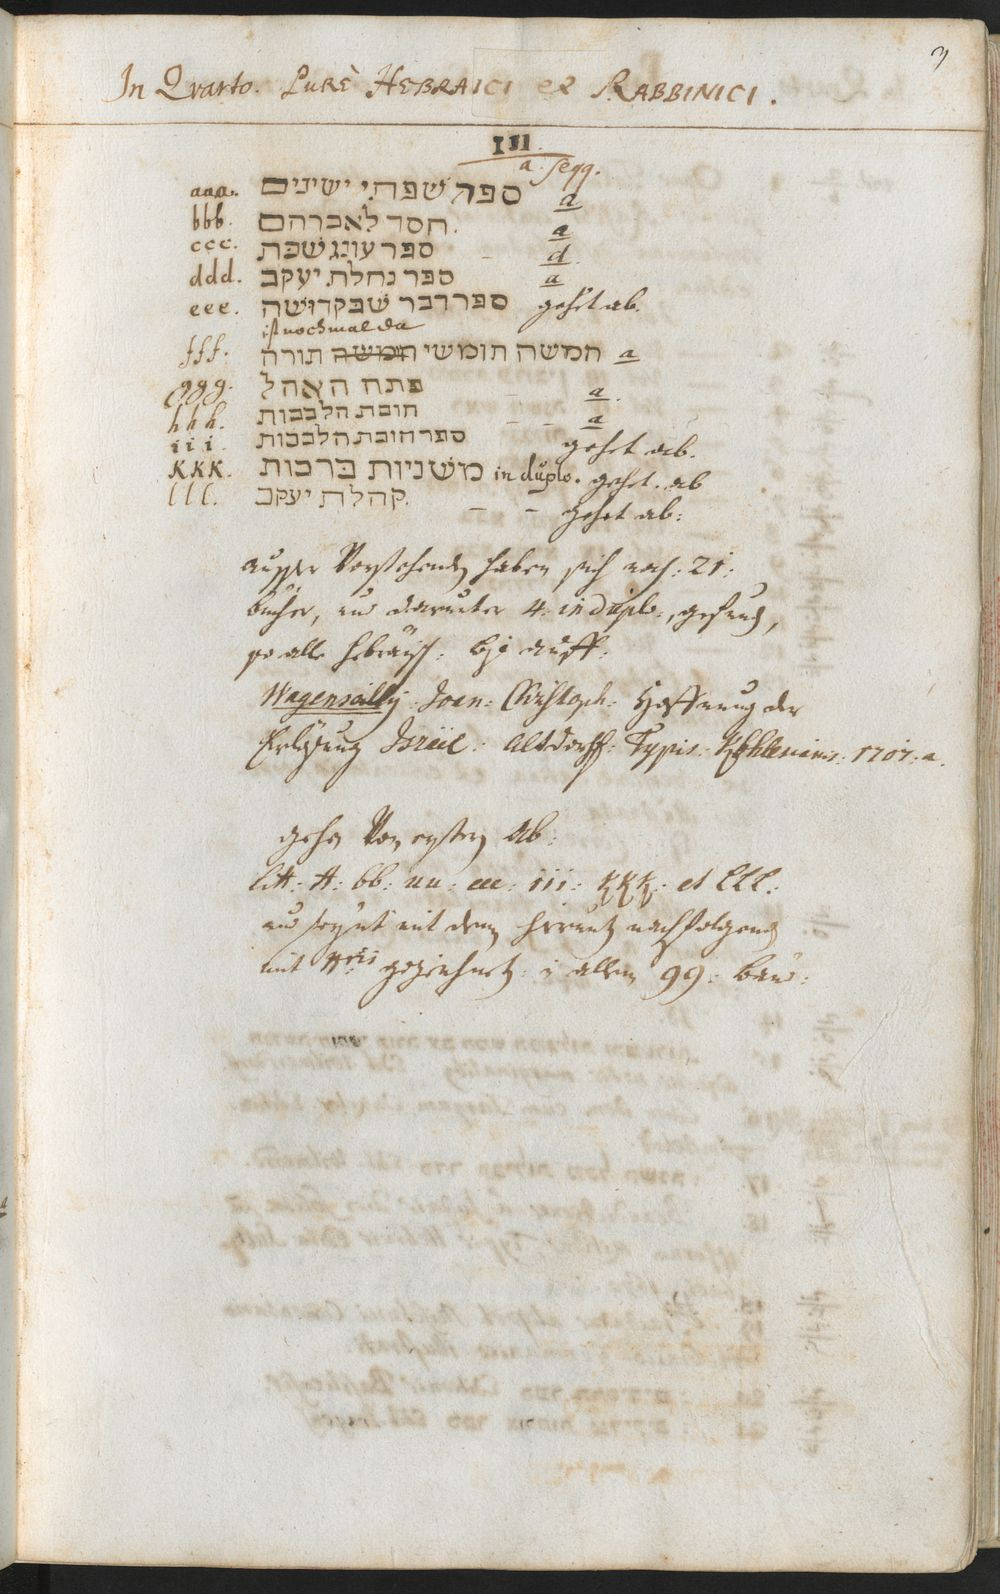 3
In Qvarto. Purè Hebraici et Rabbinici.
III.
a. seqq.
aaa. ספר שפתי ישינים a
bbb. חסד לאברהם. a
ccc. ספר עונג שבת – d.
ddd. ספר נחלת יעקב a
eee. ספר דבר שבקדושה gehet ab.
ist nochmal da
fff. חמשה חומשי חמשה תורה a
ggg. פתח האהל – a.
hhh. חובת הלבבות – – a
iii. ספר חובת הלבבות gehet ab.
KKK. משניות ברכות in duplo. gehet. ab
lll. קהלת יעקב. – – gehet ab:
ausser Vorstehenden haben sich noch: 21:
bücher, und darunter 4. in duplo., gefunden,
so alle hebräisch: biß auff:
Wagenseilij Joan: Christoph: Hoffnung der
Erlösung Israel: Altdorff: Typis: Kohlesianis: 1707. a.
gehen Von ersten Ab:
litt: ff: bb: uu: eee: iii: KKK: et lll:
mit gezeichnet: allem 99: Bänd: